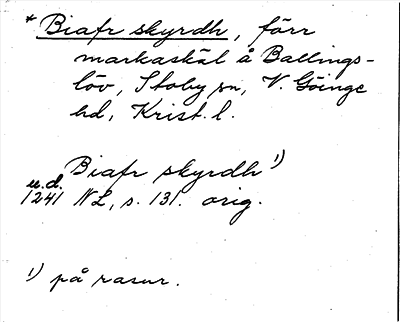 * Biafr skyrdh, förr
markaskäl å Ballings-
löv, Stoby sn, V. Göinge
hd, Krist. l.
Biafr skyrdh 1)
u.d.
1241 NL, s. 131. orig.
1) på rasur.